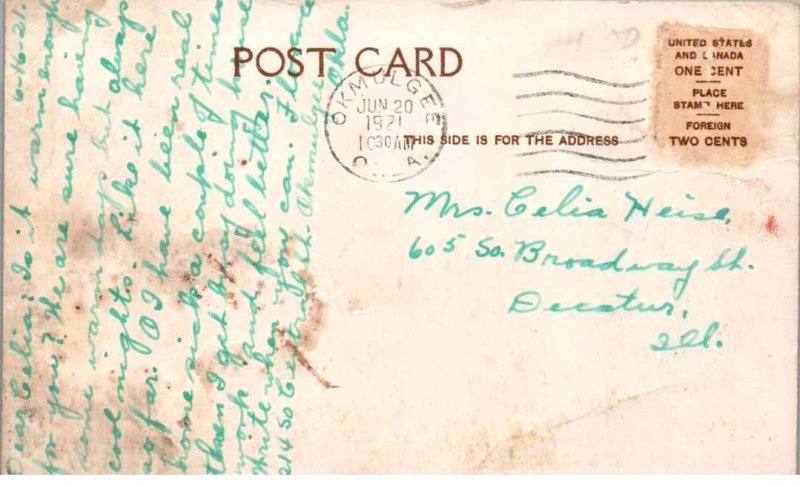 6-16-21.
Dear Celia: Is it warm enough
for you? We are sure having
some warm days but always
cool nights. Like it here
so far. I have been real
home sick a couple of times
then I get busy doing
work and feel better.
Write when you can. Florence
214 So Central St. Okmulgee Okla.
POST CARD
OKMULGEE
JUN 20
1921
10 30 AM
THIS SIDE IS FOR THE ADDRESS
UNITED STATES
AND CANADA
ONE CENT
PLACE
STAMP HERE
FOREIGN
TWO CENTS
Mrs. Celia Heise,
605 So. Broadway St.
Decatur,
Ill.